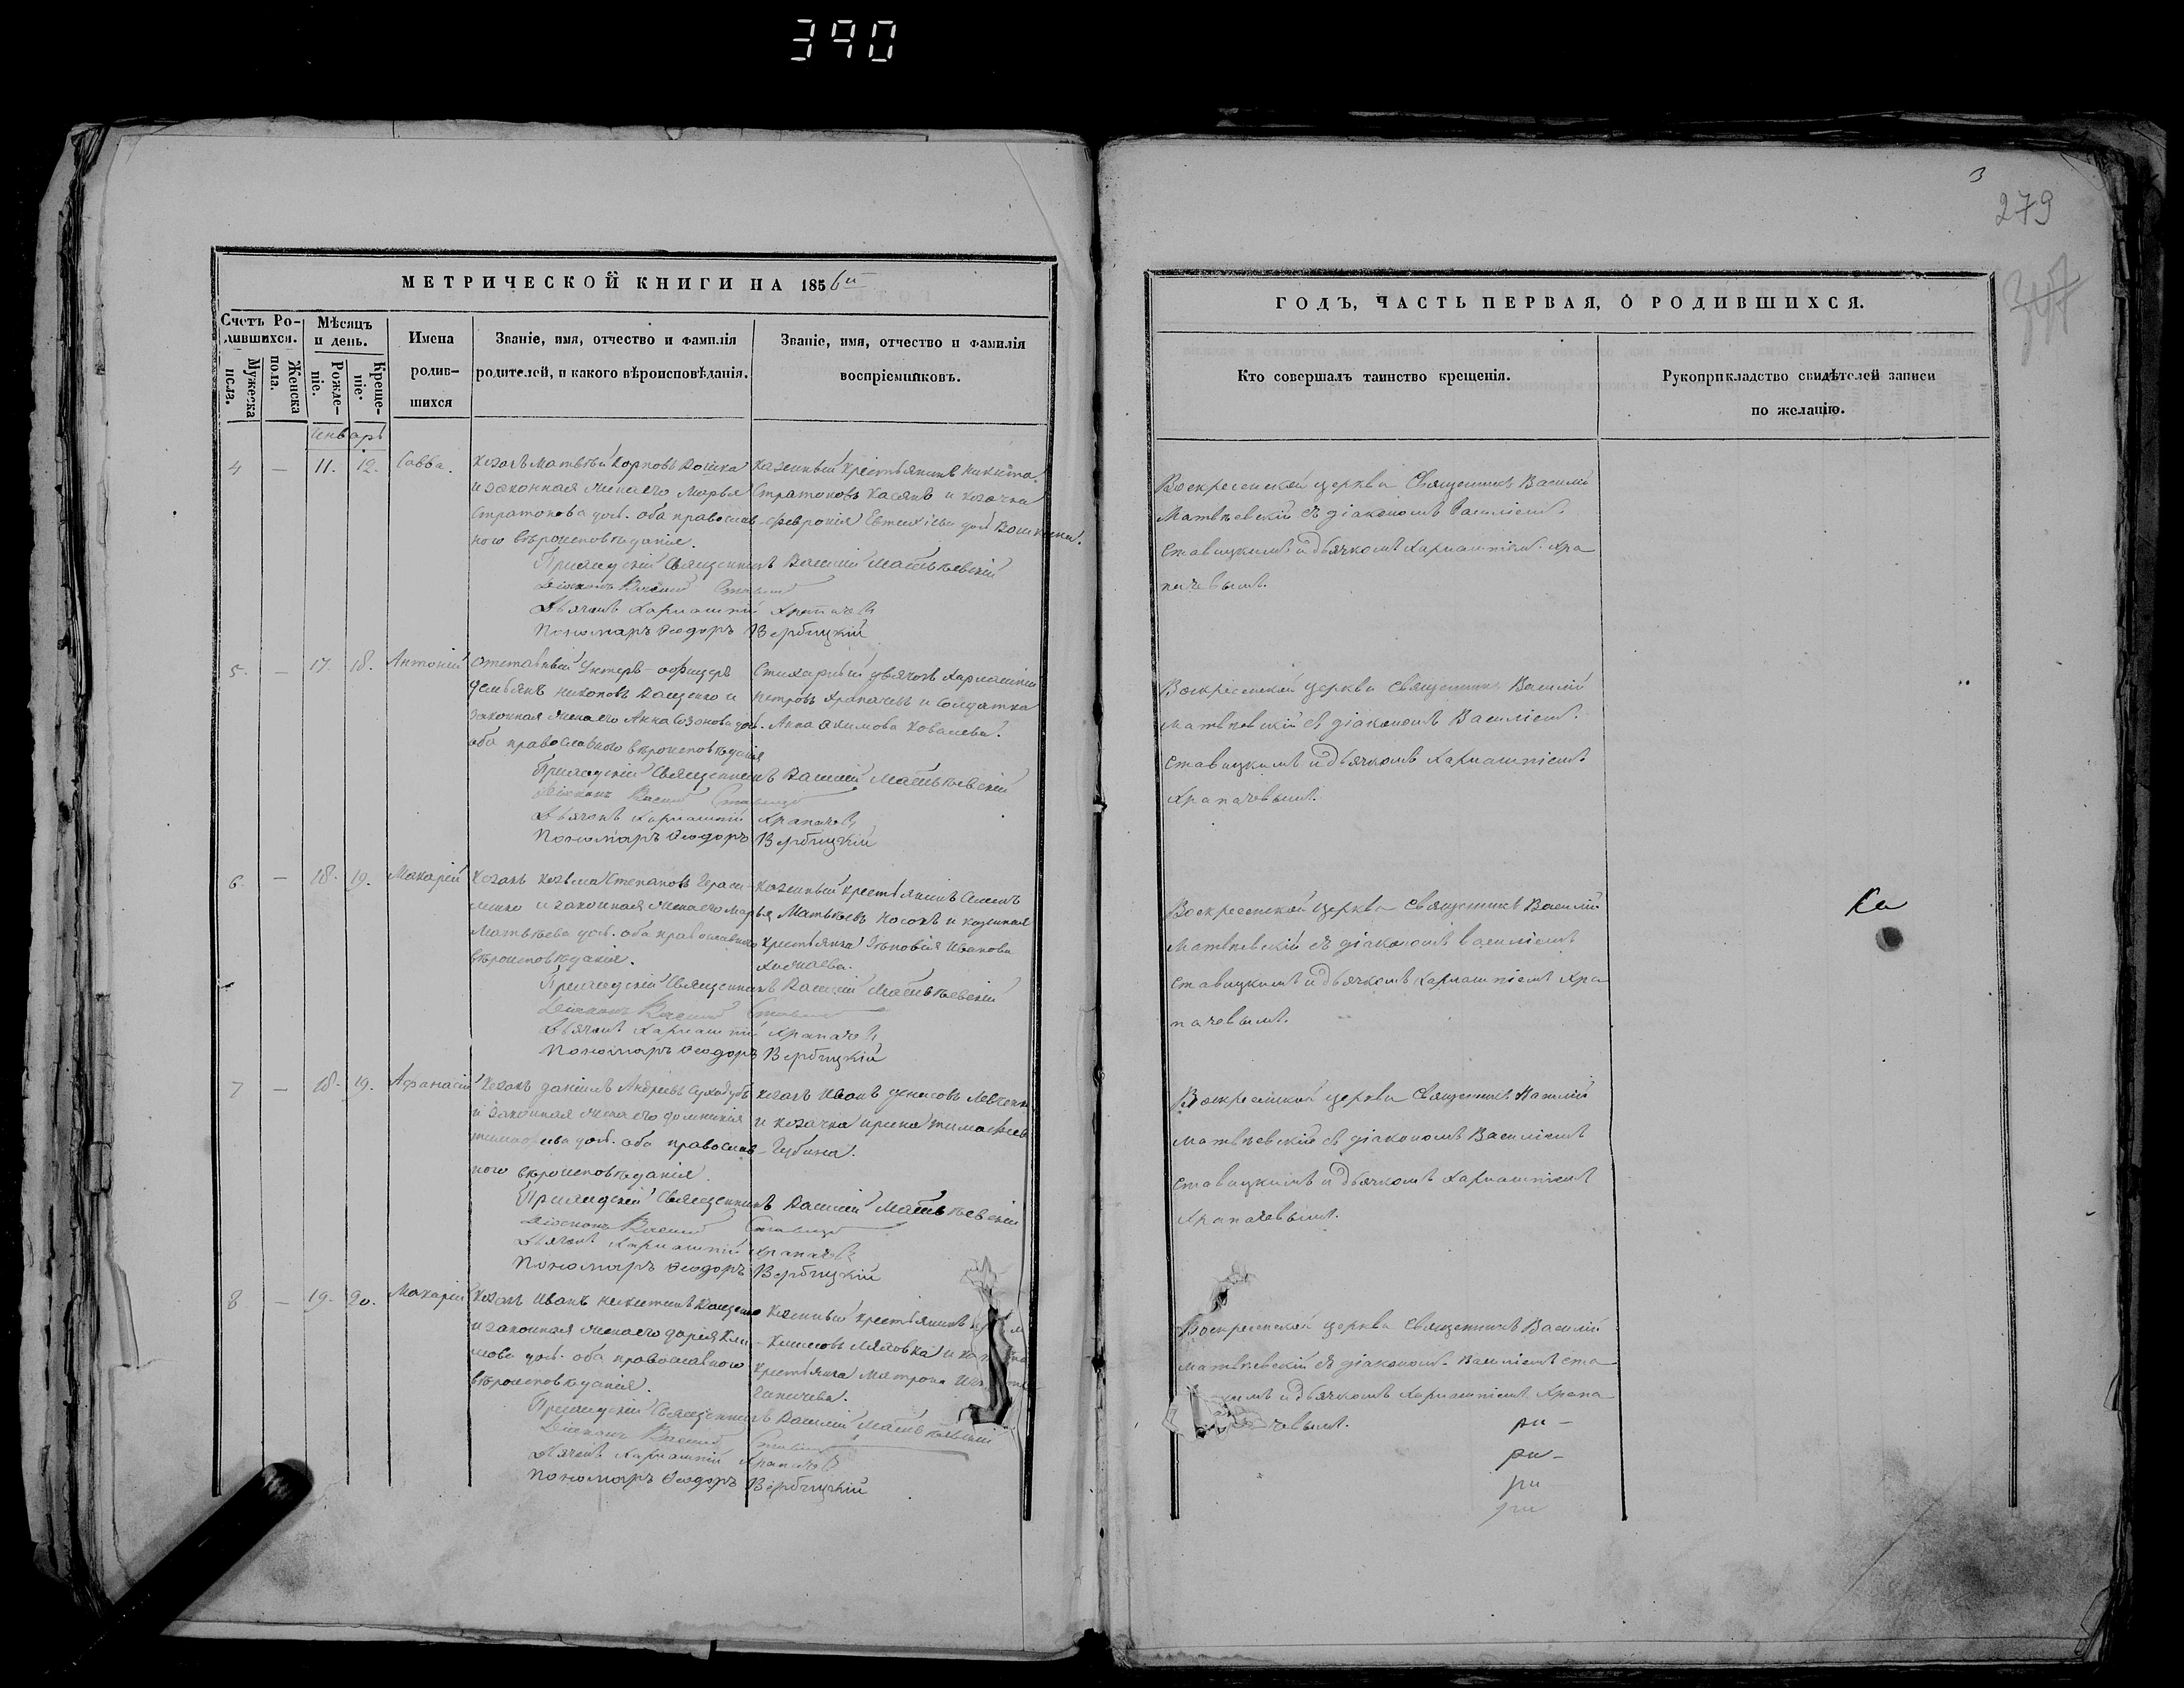 390
3
279
МЕТРИЧЕСКОЙ КНИГИ НА 1856й
Счетъ Ро-
дившихся.
Мужеска
пола.
Женска
пола.
Мѣсяцъ
и день.
Рожде-
ніе.
Креще-
ніе.
Имена
родив-
шихся
Званіе, имя, отчество и фамилія
родителей, и какого вѣроисповѣданія.
Званіе, имя, отчество и фамилія
воспріемниковъ.
Январь
4 — 11. 12. Савва.
Козакъ Матвѣй Карповъ
и законная жена его Марья
Стратонова доч. оба православ-
ного вѣроисповѣданія.
Казенный крестьянинъ Никита
Стратоновъ Касянъ и козачка
Феврония Евтихіева доч.
Приходскій Священникъ Василій Матвѣевскій
Діаконъ Василій
Дьячекъ Харлампій Храпачовъ
Пономарь Феодоръ Вербицкій
5. — 17. 18. Антоній
Отставный Унтеръ-офицеръ
Демьянъ Кащенко и
законная жена его Анна Созонова доч.
оба православного вѣроисповѣданія
Стихарный дьячокъ Харлампій
Петровъ Храпачевъ и солдатка
Анна Акимова Ковалева.
Приходскій Священникъ Василій Матвѣевскій
Діаконъ Василій
Дьячекъ Харлампій Храпачовъ
Пономарь Феодоръ Вербицкій
6. — 18. 19. Макарій
Козакъ Козьма Степановъ Гераси-
менко и законная жена его Марья
Матвѣева доч. оба православного
вѣроисповѣданія.
Казенный крестьянинъ
Матвѣевъ Носокъ и казенная
крестьянка Зѣновія Иванова
Приходскій Священникъ Василій Матвѣевскій
Діаконъ Василій
Дьячекъ Харлампій Храпачовъ
Пономарь Феодоръ Вербицкій
7 — 18. 19. Афанасій
Козакъ Даніилъ Андреевъ Суходубъ
и законная жена его Домникія
Тимофѣева доч. оба православ-
ного вѣроисповѣданія.
Козакъ Иванъ Денисовъ
и козачка Ирина Тимофѣева
Губина.
Приходскій Священникъ Василій Матвѣевскій
Діаконъ Василій
Дьячекъ Харлампій Храпачовъ
Пономарь Феодоръ Вербицкій
8 — 19. 20. Макарій
Козакъ Иванъ Никитинъ Кащенко
и законная жена его Дарія Кли-
мова доч. оба православного
вѣроисповѣданія.
Казенный крестьянинъ
крестьянка Матрона
Приходскій Священникъ Василій Матвѣевскій
Діаконъ Василій
Дьячекъ Харлампій Храпачовъ
Пономарь Феодоръ Вербицкій
ГОДЪ, ЧАСТЬ ПЕРВАЯ, О РОДИВШИХСЯ.
Кто совершалъ таинство крещенія.
Рукоприкладство свидѣтелей записи
по желанію.
Воскресенской церкви Священникъ Василій
Матвѣевскій съ діакономъ Василіемъ
Ставицкимъ и дьячкомъ Харлампіемъ Хра
пачевымъ.
Воскресенской церкви Священникъ Василій
Матвѣевскій съ діакономъ Василіемъ
Ставицкимъ и дьячкомъ Харлампіемъ
Храпачевымъ.
Воскресенской церкви Священникъ Василій
Матвѣевскій съ діакономъ Василіемъ
Ставицкимъ и дьячкомъ Харлампіемъ Хра
пачевымъ.
Ка
Воскресенской церкви Священникъ Василій
Матвѣевскій съ діакономъ Василіемъ
Ставицкимъ и дьячкомъ Харлампіемъ
Храпачевымъ.
Воскресенской церкви Священникъ Василій
Матвѣевскій съ діакономъ Василіемъ Ста
имъ и дьячкомъ Харлампіемъ Храпа
чевымъ.
ри -
ри -
ри
ри